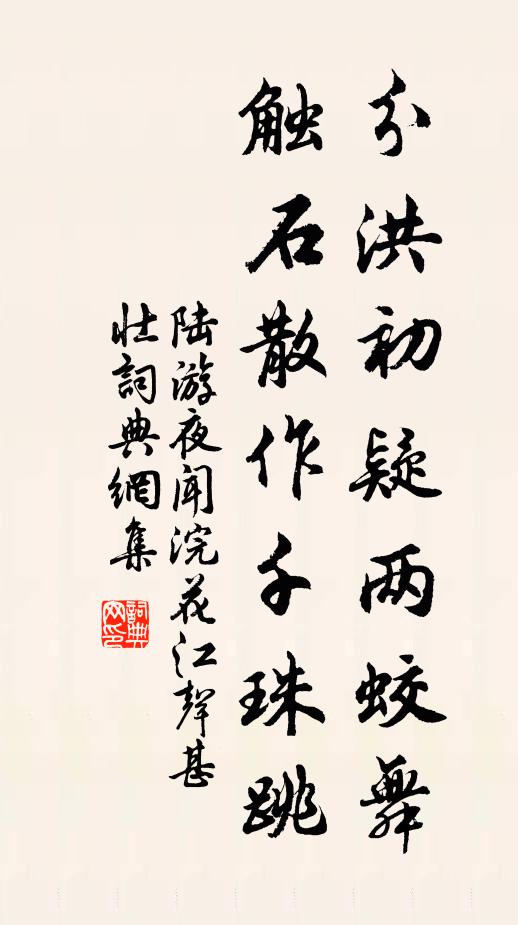 分洪初疑两蛟舞
触石散作千珠跳
陆游夜闻浣花江聲甚
壮詞典網集
詞典网印